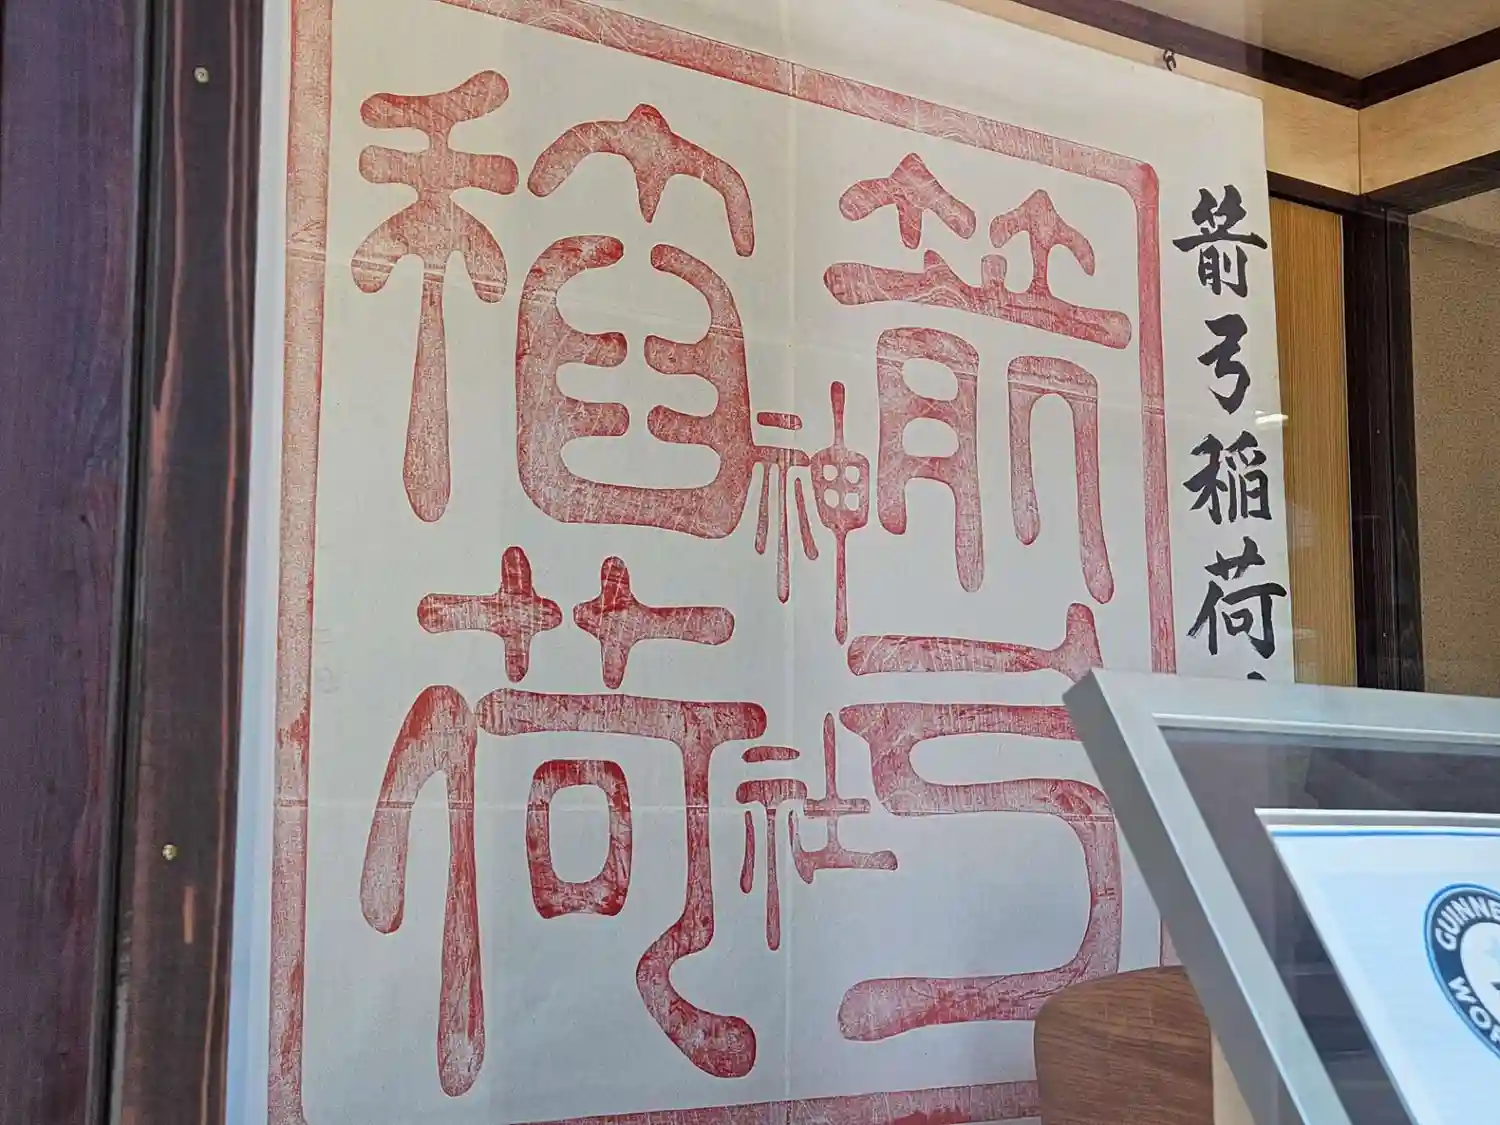 箭弓稲荷
箭弓
神社
稲荷
GUINNE
WOR